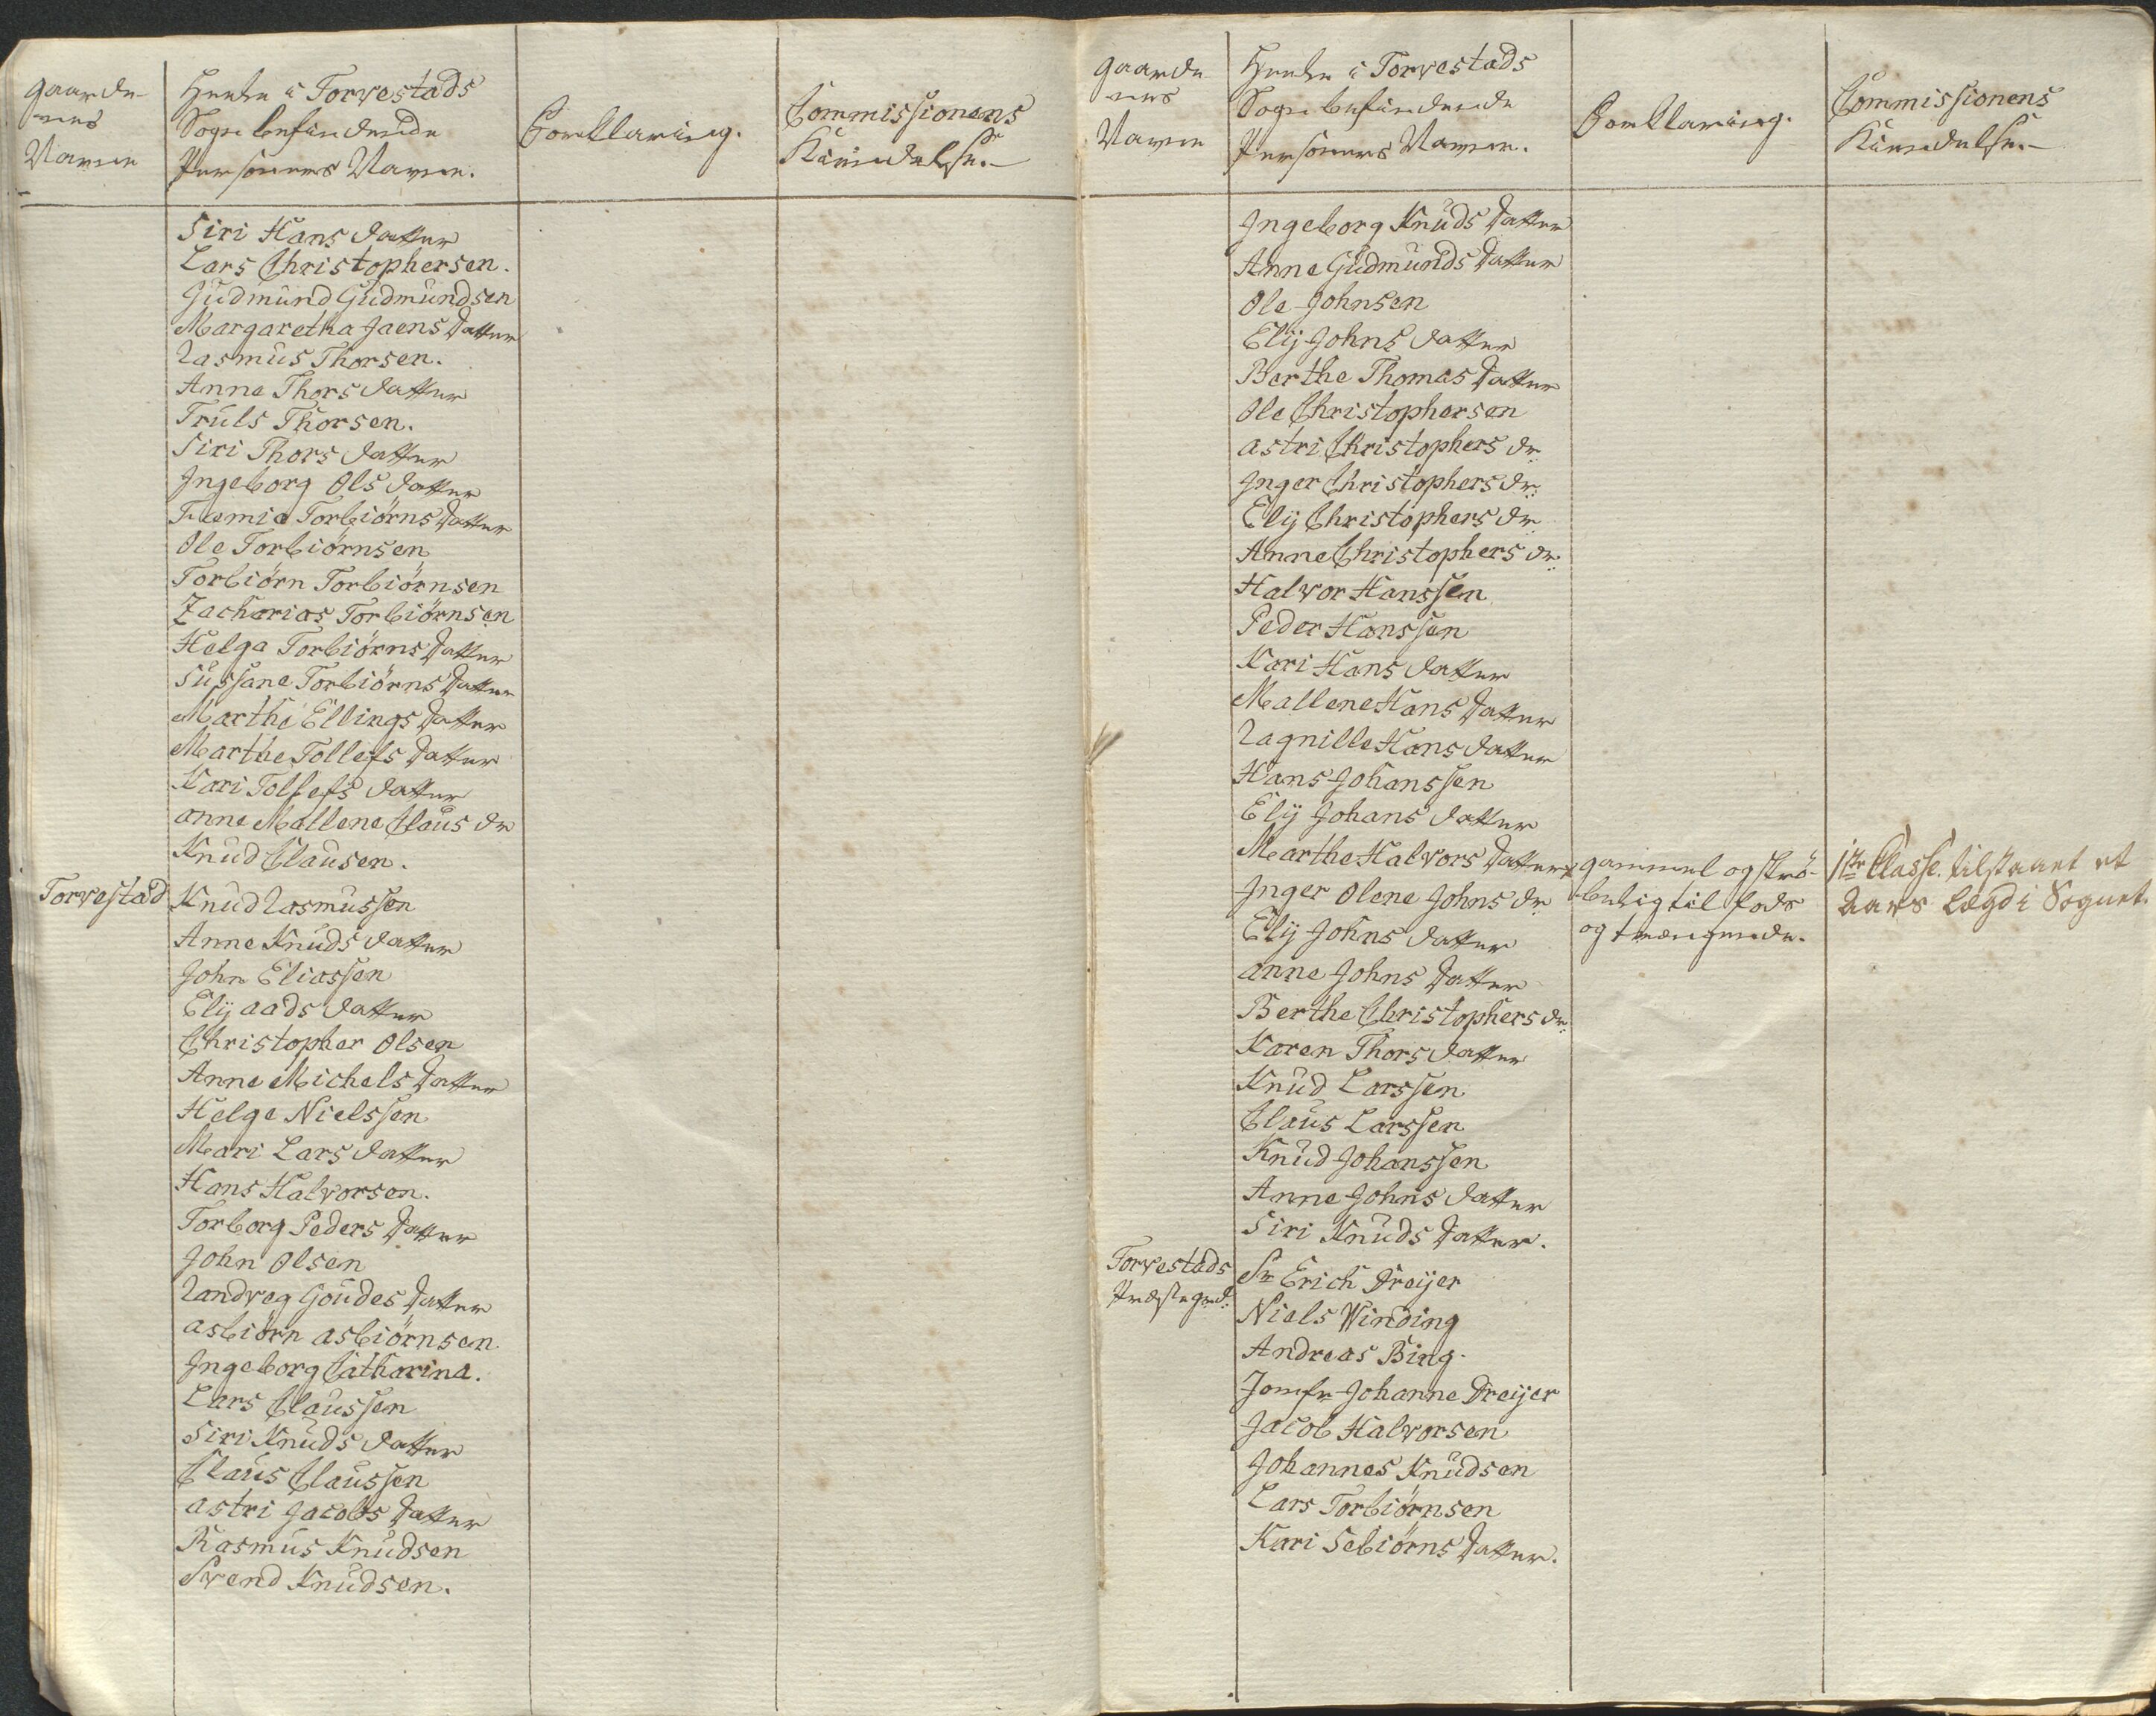 Gaarde-
nes
Navne
Heele i Torvestads
Sogn befindende
Personers Navne.
Forklaring.
Commissionens
Kiendelse.
Siri Hans datter
Lars Christophersen.
Gudmund Gudmundsen
Margaretha Jaens datter
Rasmus Thorsen.
Anne Thors datter
Truls Thorsen.
Siri Thors datter
Ingeborg Ols datter
Torbiörns datter
Ole Torbiörnsen
Torbiörn Torbiörnsen
Zacharias Torbiörnsen
Helga Torbiörns datter
Sussane Torbiörns datter
Marthe Ellings datter
Marthe Tollefs datter
Kari Tollefs datter
Anne Mallene Claus dr
Knud Clausen.
Torvestad Knud Rasmussen
Anne Knuds datter
John Eliassen
Elij Aads datter
Christopher Olsen
Anne Michels datter
Helge Nielssen
Mari Lars datter
Hans Halvorsen.
Torborg Peders datter
John Olsen
Randveg Goudes datter
Asbiörn Asbiörnsen.
Ingeborg Catharina.
Lars Claussen
Siri Knuds datter
Claus Claussen
Astri Jacobs datter
Rasmus Knudsen
Svend Knudsen.
Gaarde-
nes
Navne
Heele i Torvestads
Sogn befindende
Personers Navne.
Forklaring.
Commissionens
Kiendelse.
Ingeborg Knuds datter
Anne Gudmunds datter
Ole Johnsen
Elij Johns datter
Berthe Thomas datter
Ole Christophersen
Astri Christophers dr:
Inger Christophers dr:
Elij Christophers dr:
Anne Christophers dr:
Halvor Hanssen
Peder Hanssen
Kari Hans datter
Mallene Hans datter
Ragnille Hans datter
Hans Johanssen
Elij Johans datter
Marthe Halvors datter x gammel og skrö- 1ste Classe. tilstaaet et
Inger Olene Johns dr -belig til fods Aars Lægd i Sognet.
Elij Johns datter og trængende.
Anne Johns datter
Berthe Christophers dr:
Karen Thors datter
Knud Larssen
Claus Larssen
Knud Johanssen
Anne Johns datter
Siri Knuds datter.
Torvestads Sr Erich Dreijer
Præstegrd: Niels Winding
Andreas Bing.
Jomfr Johanne Dreijer
Jacob Halvorsen
Johannes Knudsen
Lars Torbiörnsen
Kari Sebiörns datter.